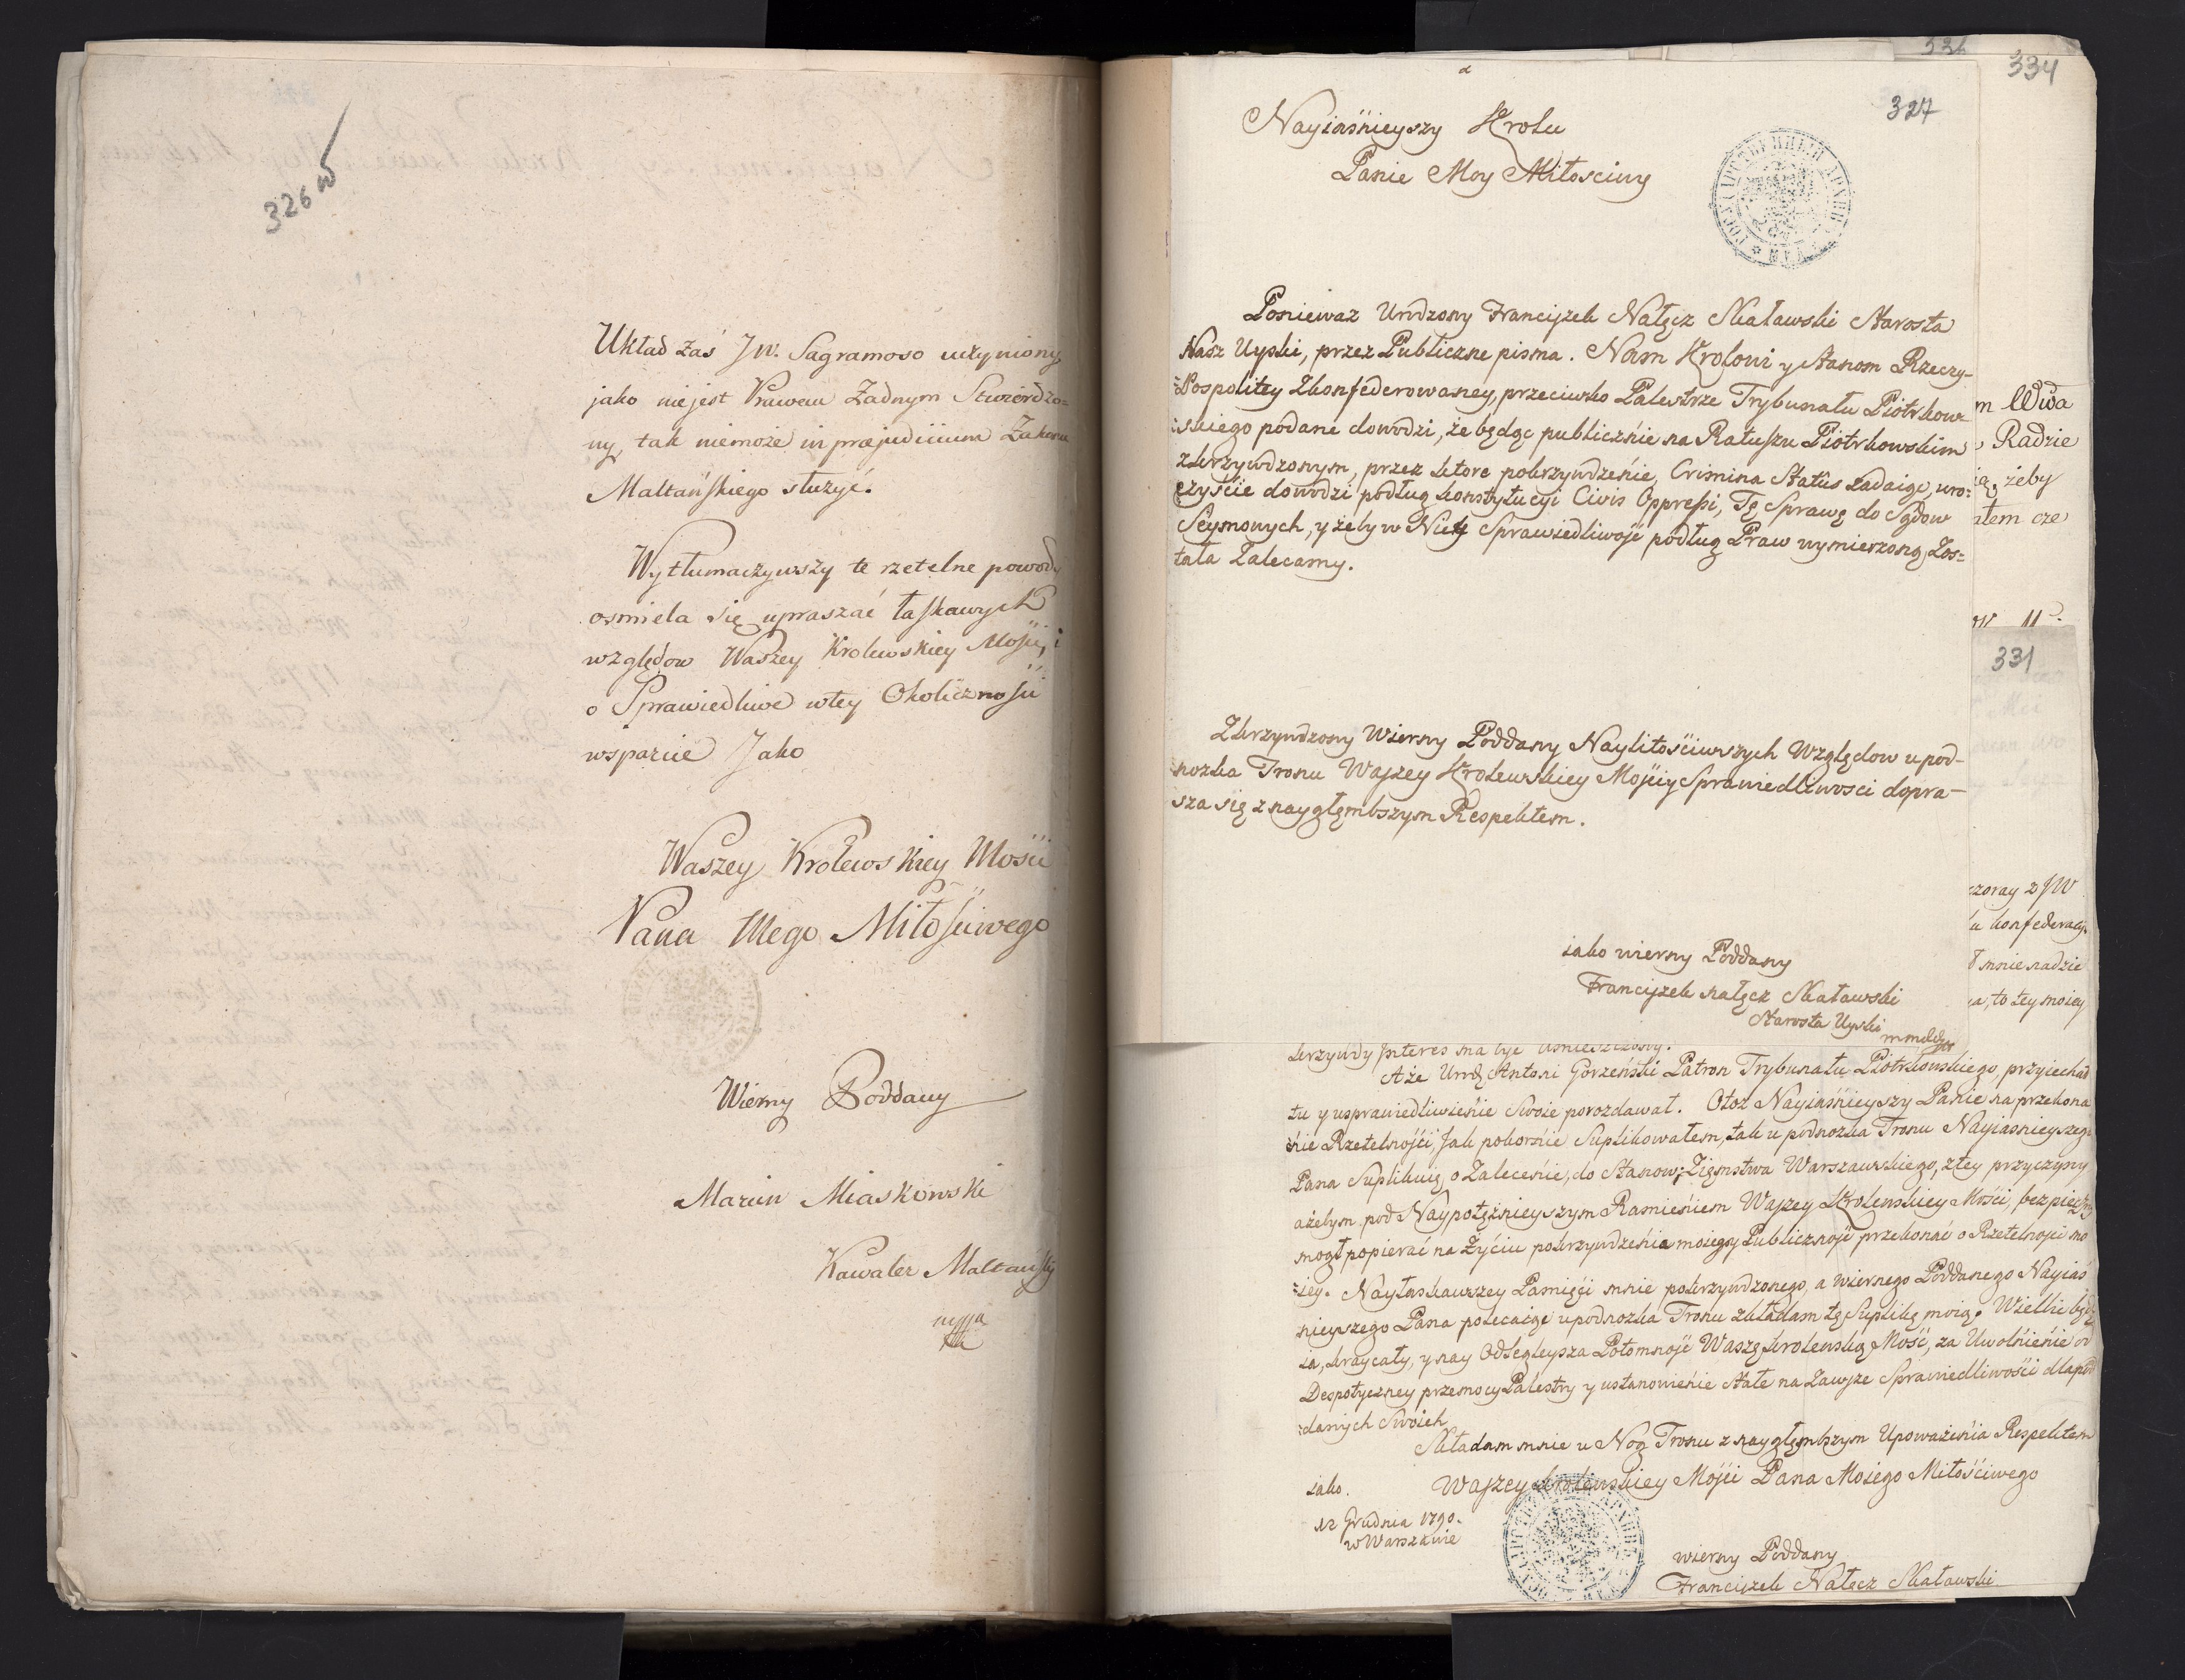 326 w
Układ zaś JW. Sagramoso uczyniony
jako niejest Prawem Żadnym Stwierdzo=
ny, tak niemoże in præjudicium Zakonu
Maltańskiego służyć.
Wytłumaczywszy te rzetelne powody
osmiela się upraszać łaskawych
względow Waszey Krolewskiey Mości, i
o Sprawiedliwe wtey Okoliczności
wsparcie Jako
Waszey Krolewskiey Mosci
Pana Mego Miłościwego
Wierny Poddany
Marcin Miaskowski
Kawaler Maltański
326
334
327
Nayiaśnieyszy Krolu
Panie Moy Miłosciwy
Poniewaz Urodzony Franciszek Nałęcz Skaławski Starosta
Nasz Uyski, przez Publiczne pisma. Nam Krolowi y Stanom Rzeczy-
=Pospolitey Zkonfederowaney, przeciwko Palestrze Trybunału Piotrkow
=skiego podane dowodzi, że będąc publicznie na Ratuszu Piotrkowskim
zkrzywdzonym, przez ktore pokrzywdzenie, Crimina Status zadaiąc, uro=
czyście dowodzi podług konstytucyi Civis Oppressi, Tę Sprawę do Sądow
Seymowych, y żeby w Niey Sprawiedliwość podług Praw wymierzoną Zos=
tała Zalecamy.
Zkrzywdzony Wierny Poddany Naylitościwszych Względow u pod-
nozka Tronu Waszey Krolewskiey Mości y Sprawiedliwosci dopra-
sza się z naygłęmbszym Respektem.
iako wierny Poddany
Franciszek nałęcz Skaławski
Starosta Uyski
m Wwa
Radzie
żeby
331
czoray z JW
u konfederacy
mnie nadzie
a, to tey moiey
krzywdy Jnteres ma być umieszczony.
A że Urodz Antoni Gorzeński Patron Trybunału Piotrkowskiego, przyiechał
tu y usprawiedliwienie Swoie porozdawał. Otoz Nayiaśnieyszy Panie na przekona
nie Rzetelności, Jak pokornie Suplikowałem, tak u podnozka Tronu Nayiasnieyszego
Pana Suplikuię, o Zalecenie, do Stanow, Ziemstwa Warszawskiego, z tey przyczyny
ażebym pod Naypotężnieyszym Ramieniem Waszey Krolewskiey Mości, bezpieczny
mogł popierać na Życiu pokrzywdzenia moiego y Publiczność przekonać o Rzetelności mo
=iey. Nayłaskawszey Pamięci mnie pokrzywdzonego, a wiernego Poddanego Nayias
nieyszego Pana polecaiąc upodnozka Tronu zkładam tę Suplikę moię. Wielbić będ
ia, kray cały, y nay Odlegleysza Potomność Waszę krolewską Mość, za Uwolnienie od
Despotyczney przemocy Palestry y ustanowienie Stałe na Zawsze Sprawiedliwości dla pod
=danych Swoich
Składam mnie u Nog Tronu z naygłęmbszym Upoważenia Respektem
iako. Waszey krolewskiey Mości Pana Moiego Miłościwego
12 Grudnia 1790.
w Warszawie
wierny Poddany
Franciszek Nałęcz Skaławski